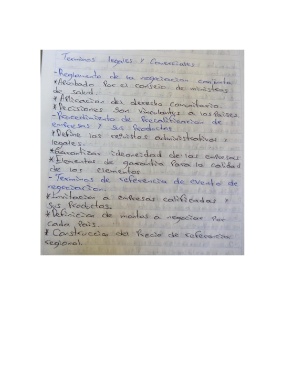 Terminos legales y Comerciales
- Reglamento de la negociacion conjunta
* Aprobado por el consejo de ministros
de salud.
* Aplicacion del derecho comunitario.
* Decisiones son vinculantes a los Paises
- Procedimiento de Precalificacion de
empresas y sus productos
* Define los requisitos administrativos y
legales.
* Garantizar idoneidad de las empresas
* Elementos de garantia para la calidad
de los elementos
- Terminos de referencia de evento de
negociacion.
* Invitacion a empresas calificadas y
sus Productos.
* Definicion de montos a negociar Por
cada Pais.
* Construccion del Precio de referencia
regional.